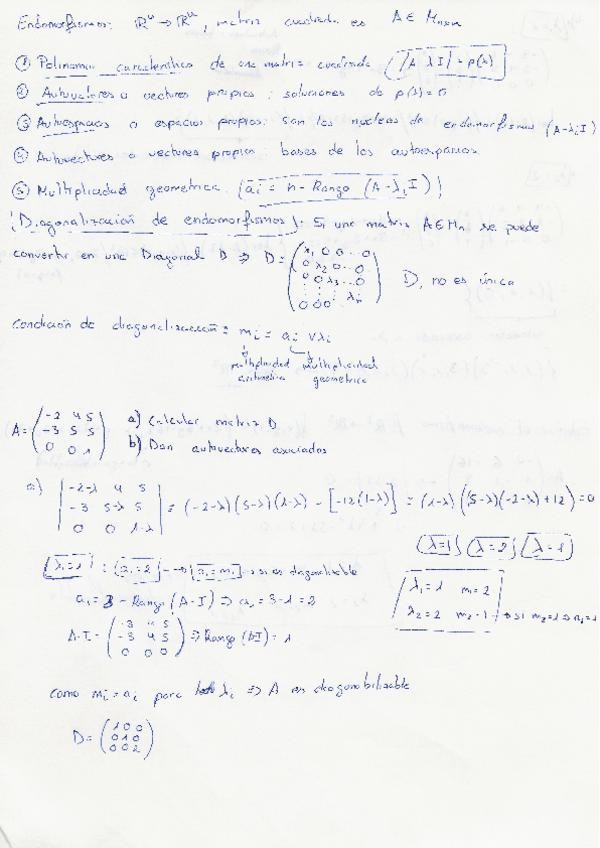 Endomorfismos: ℝⁿ → ℝⁿ, matriz cuadrada es A ∈ Mₙₓₙ
① Polinomio característico de una matriz cuadrada |A λI| = p(λ)
② Autovalores o vectores propios: soluciones de p(λ)=0
③ Autoespacios o espacios propios: Son los núcleos de endomorfismos (A-λᵢI)
④ Autovectores o vectores propios: bases de los autoespacios
⑤ Multiplicidad geometrica (aᵢ = n - Rango (A-λᵢI))
(Diagonalización de endomorfismos): Si una matriz A∈Mₙ se puede
convertir en una Diagonal D ⇒ D = (λ₁ 0 0 ... 0
0 λ₂ 0 ... 0
0 0 λ₃ ... 0
0 0 0 λₙ) D, no es única
Condición de diagonalización = mᵢ = aᵢ ∀λᵢ
multiplicidad multiplicidad
aritmetica geometrica
A = (-2 4 5
-3 5 5
0 0 1)
a) Calcular matriz D
b) Dar autovectores asociados
a) |-2-λ 4 5
-3 5-λ 5
0 0 1-λ| = (-2-λ)(5-λ)(1-λ) - [-12(1-λ)] = (1-λ)((5-λ)(-2-λ)+12) = 0
(λ=1); (λ=2); (λ=1)
λ₁=1 : a₁=2 → a₁=m₁ → si es diagonalizable
λ₁=1 m=2
λ₂=2 m=1 → si m₂=1 ⇒ a₂=1
a₁ = 3 - Rango (A-I) ⇒ a₁ = 3-1 = 2
A-I = (-3 4 5
-3 4 5
0 0 0) ⇒ Rango = 1
Como mᵢ = aᵢ para λᵢ ⇒ A es diagonabilizable
D = (1 0 0
0 1 0
0 0 2)